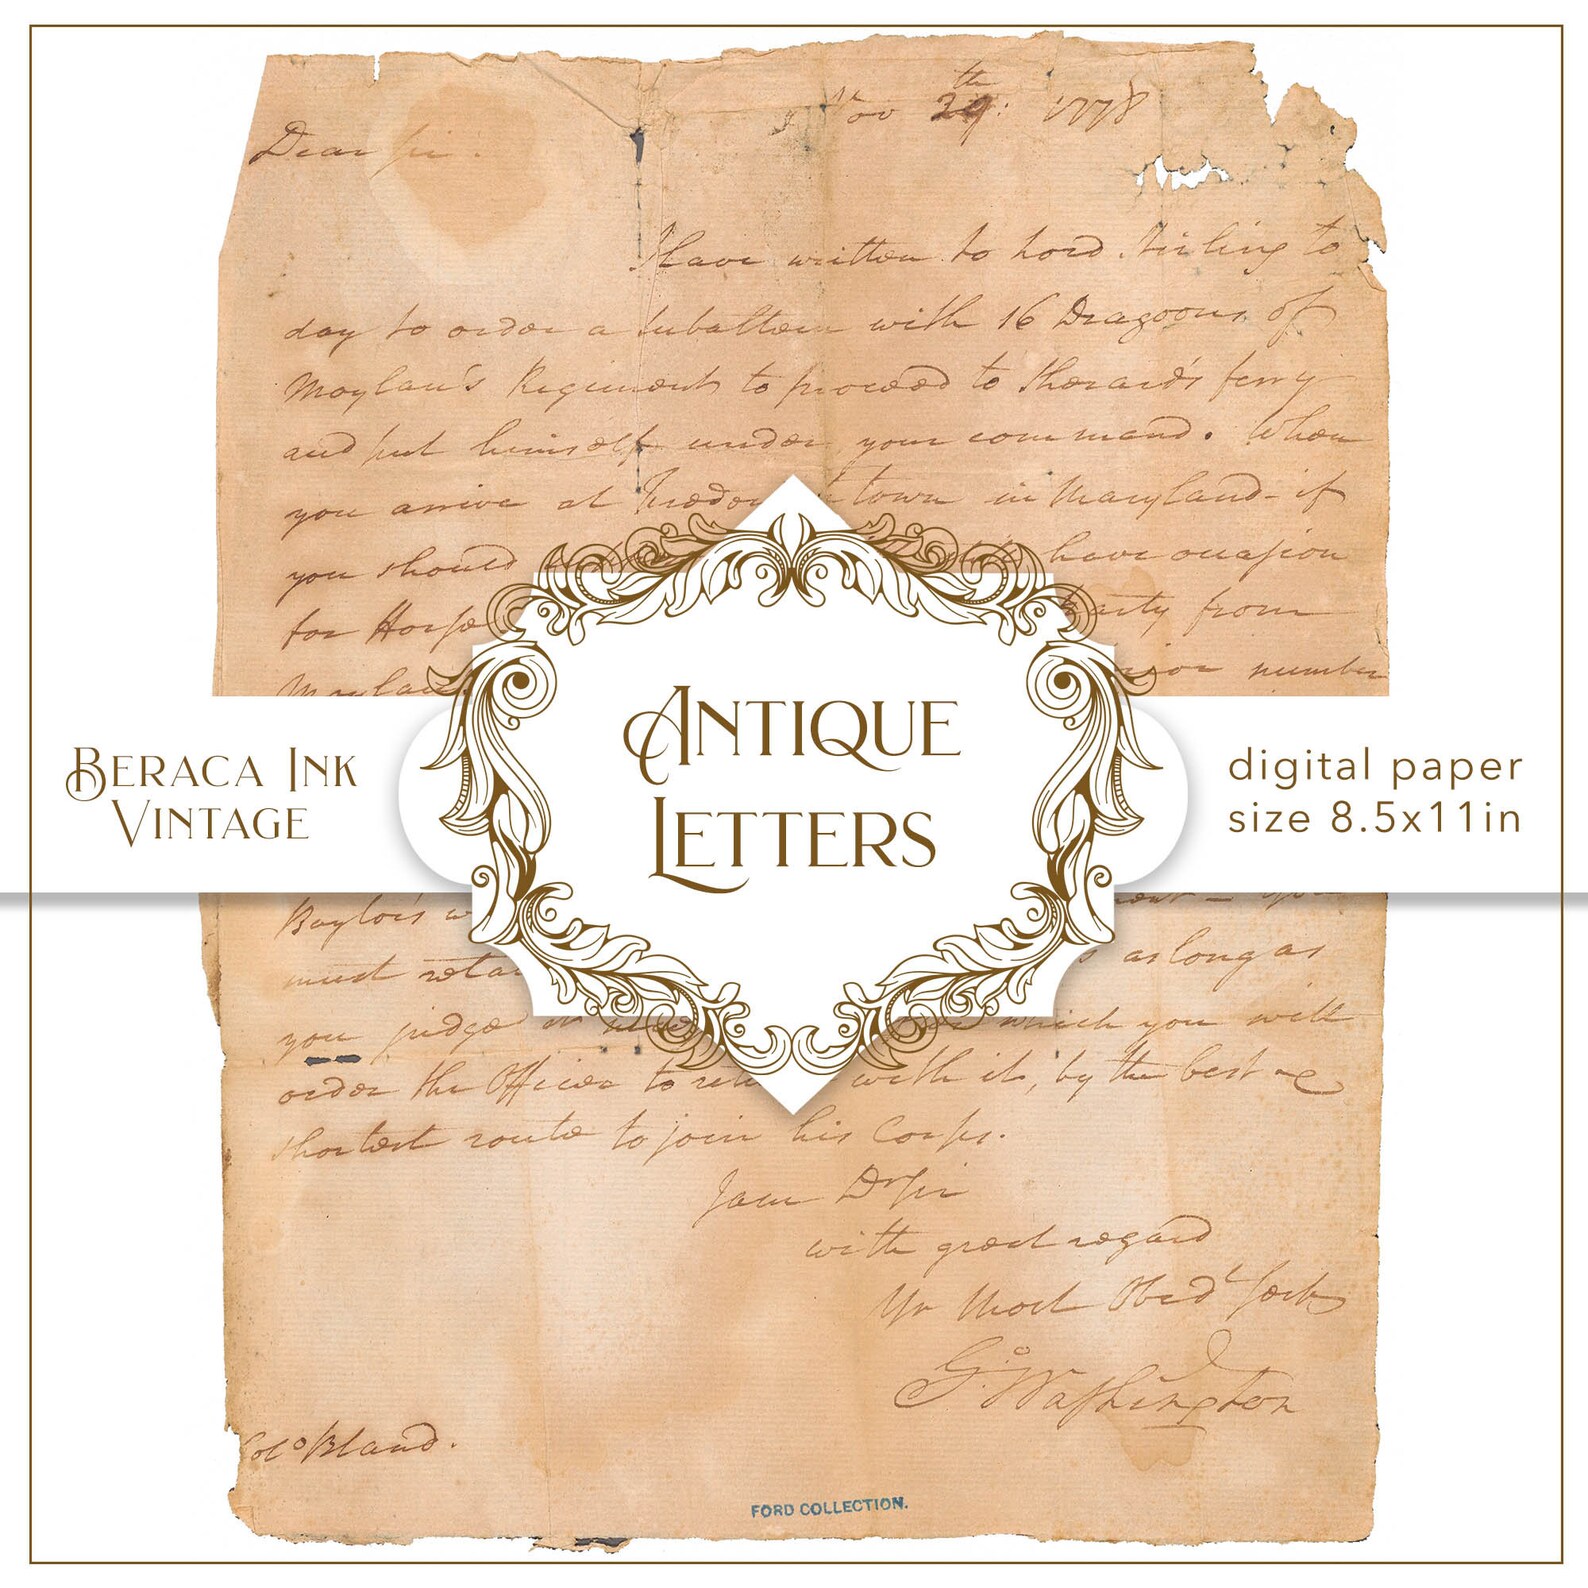 Nov 29:th 1778
Dear Sir.
I have written to Lord Stirling to
day to order a Subaltern with 16 Dragoons of
Moylan's Regiment to proceed to Sherard's ferry
and put himself under your command. When
you arrive at Freder town in Maryland - if
you should have occasion
for Horse party from
Moylan number
ANTIQUE
LETTERS
BERACA INK
VINTAGE
digital paper
size 8.5x11in
Baylor's
must as long as
you judge which you will
order the Officer to with it, by the best &
shortest route to join his Corps.
I am Dr Sir
with great regard
Yr Most Obedt Servt
Go Washington
Colo Bland.
FORD COLLECTION.